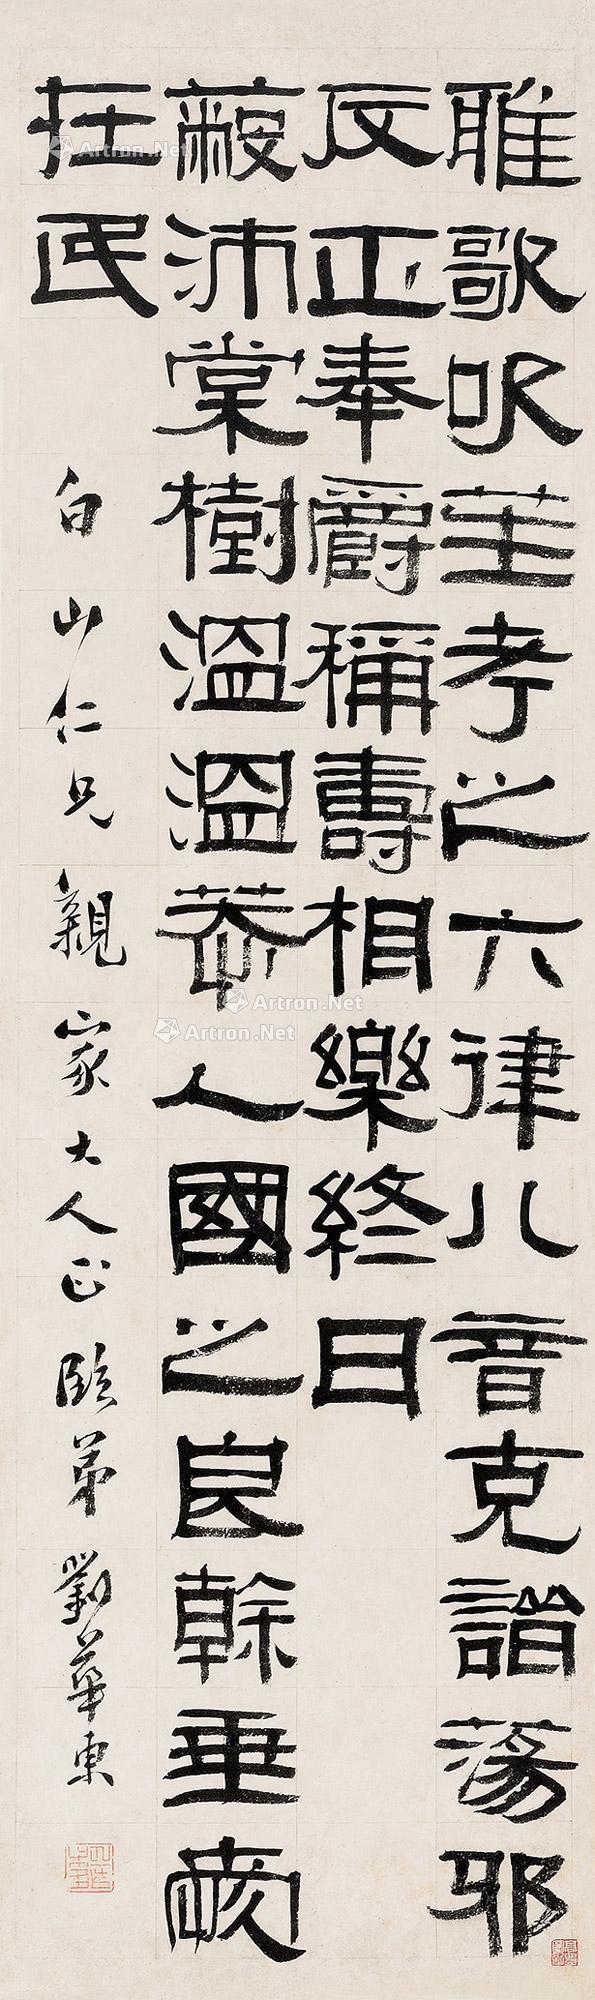 雅歌吹笙考之六律八音克諧蕩邪
反正奉爵稱壽相樂終日
蔽沛棠樹溫溫恭人國之良幹垂愛
在民
白山仁兄親家大人正臨弟劉華東
Artron.Net
Artron.Net
Artron.Net
Artron.Net